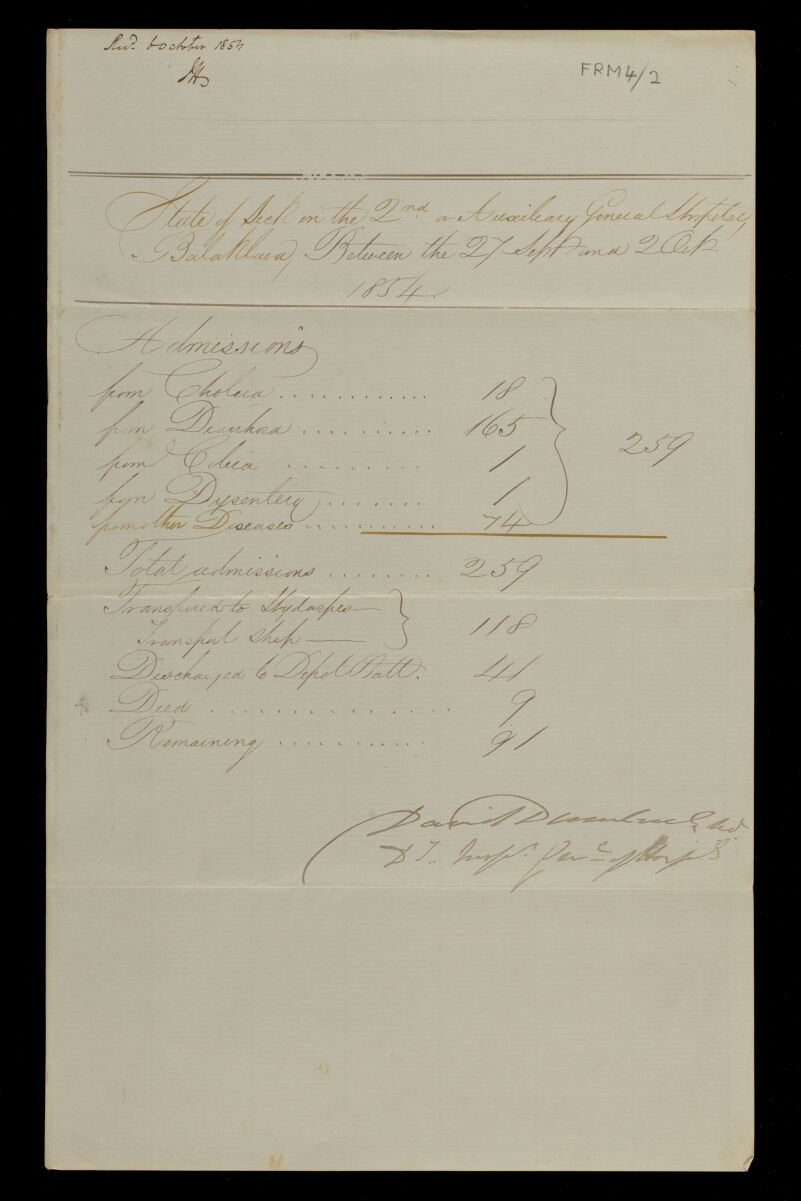 Recd. 6 October 1854
JH
FRM 4/2
State of Sick in the 2nd or Auxiliary General Hospital,
Balaklava, Between the 27 Sept and 2 Oct
1854.
Admissions
from Cholera ............ 18
from Diarrhœa .......... 165
259
from Colica ......... 1
from Dysentery ....... 1
from other Diseases .......... 74
Total admissions ........ 259
Transferred to Hydaspes—
Transport Ship — 118
Discharged to Depôt Batt. 41
Died ................ 9
Remaining ........... 91
David Dumbreck Md
Dy. Inspr. Genl. of Hospls